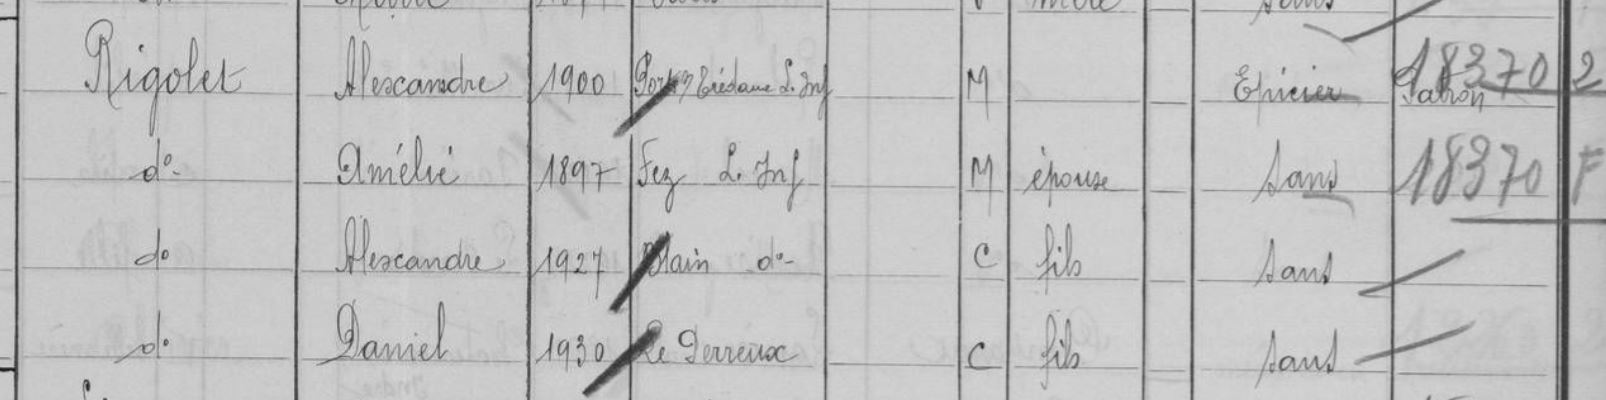 Rigolet Alexandre 1900 L. Inf M Epicier Patron 18370 2
do Amélie 1897 Fez L. Inf M épouse sans 18370 F
do Alexandre 1927 Blain do C fils sans
do Daniel 1930 Le Perreux C fils sans